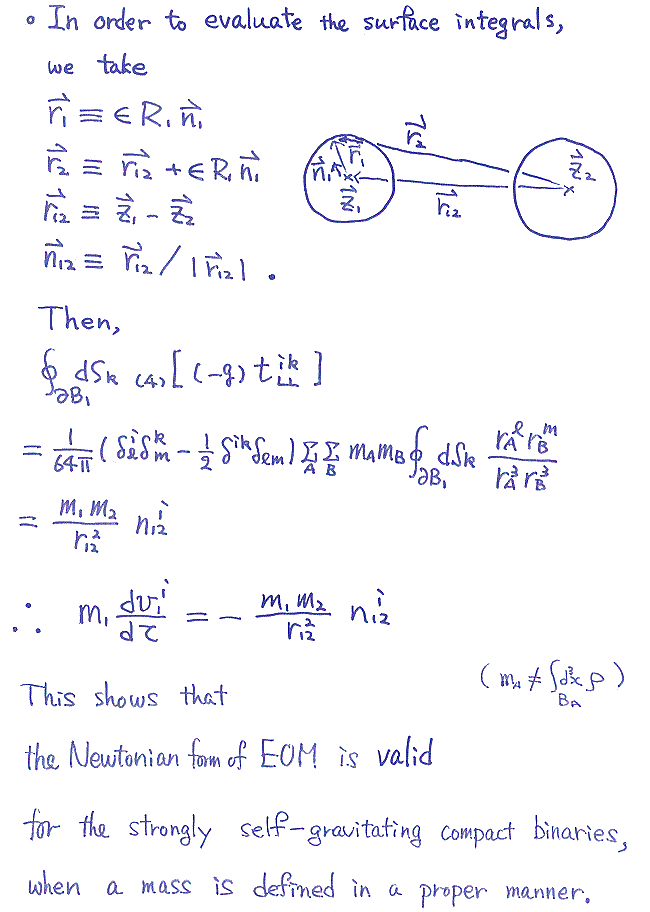 ∘ In order to evaluate the surface integrals,
we take
r⃗₁ ≡ ϵ R₁ n⃗₁
r⃗₂ ≡ r⃗₁₂ + ϵ R₁ n⃗₁
r⃗₁₂ ≡ z⃗₁ − z⃗₂
n⃗₁₂ ≡ r⃗₁₂ / |r⃗₁₂| .
r⃗₂
n⃗₁ r⃗₁
z⃗₁
z⃗₂
r⃗₁₂
Then,
∮_{∂B₁} dS_k ₍₄₎[ (−g) t_{LL}^{ik} ]
= 1/64π ( δ^i_l δ^k_m − 1/2 δ^{ik} δ_{lm} ) Σ_A Σ_B m_A m_B ∮_{∂B₁} dS_k r_A^l r_B^m / r_A^3 r_B^3
= m₁ m₂ / r₁₂² n₁₂^i
∴ m₁ dv₁^i/dτ = − m₁ m₂ / r₁₂² n₁₂^i
( m_A ≠ ∫_{B_A} d³x ρ )
This shows that
the Newtonian form of EOM is valid
for the strongly self-gravitating compact binaries,
when a mass is defined in a proper manner.